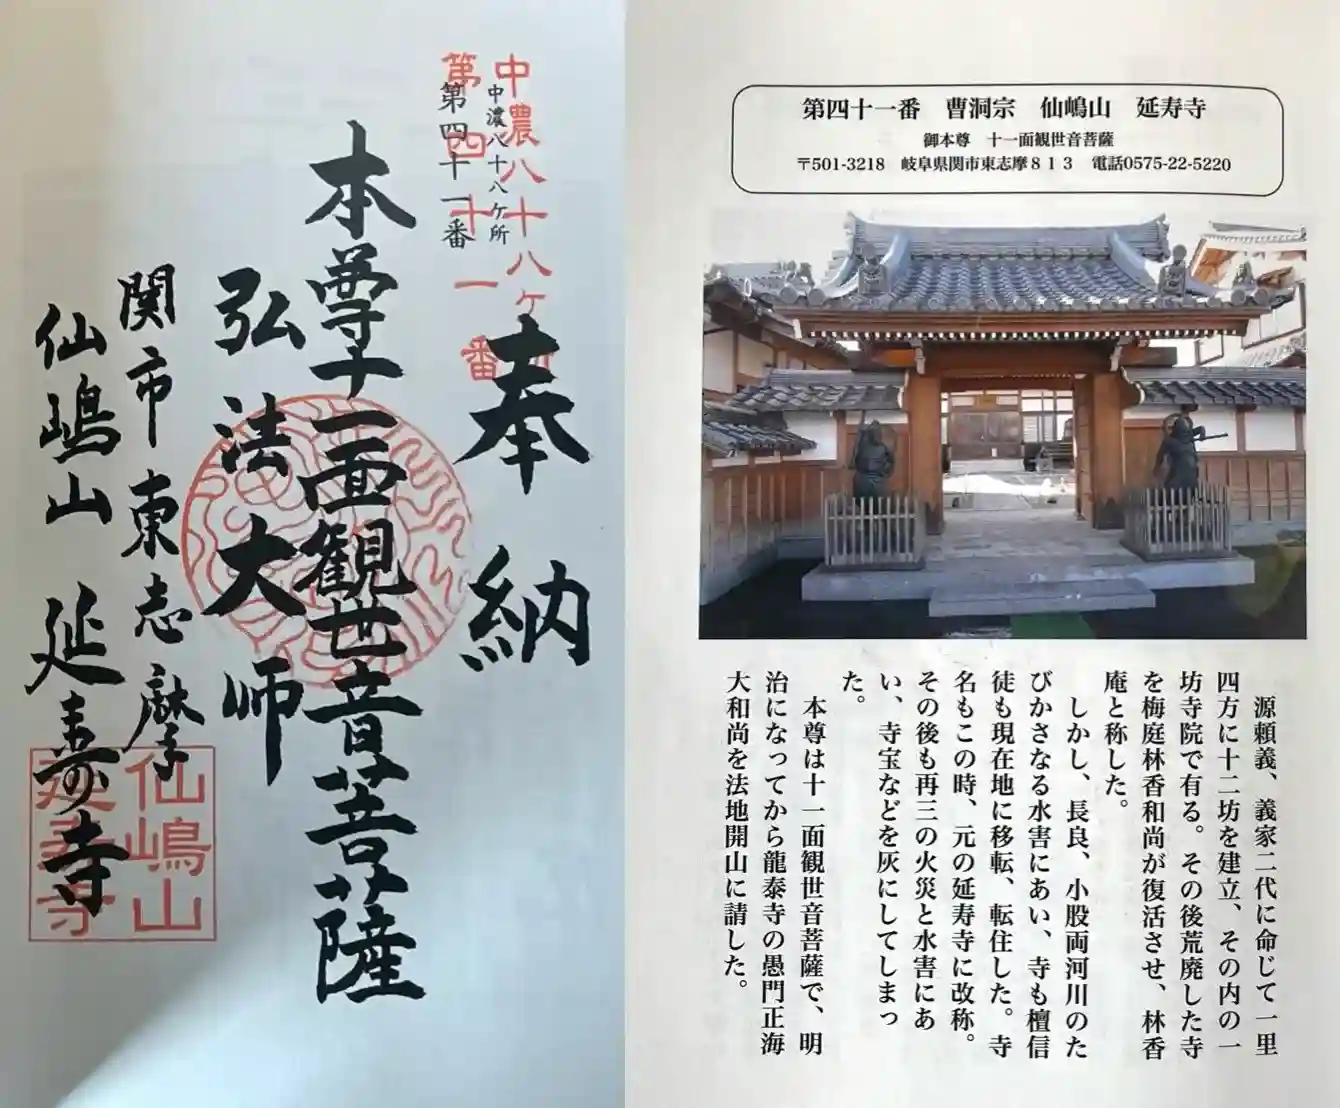 中濃八十八ケ所
第四十一番
中濃八十八ケ所
第四十一番
奉納
本尊十一面観世音菩薩
弘法大师
関市東志摩
仙嶋山 延寿寺
仙嶋山
延寿寺
第四十一番 曹洞宗 仙嶋山 延寿寺
御本尊 十一面観世音菩薩
〒501-3218 岐阜県関市東志摩８１３ 電話0575-22-5220
源頼義、義家二代に命じて一里
四方に十二坊を建立、その内の一
坊寺院で有る。その後荒廃した寺
を梅庭林香和尚が復活させ、林香
庵と称した。
しかし、長良、小股両河川のた
びかさなる水害にあい、寺も檀信
徒も現在地に移転、転住した。寺
名もこの時、元の延寿寺に改称。
その後も再三の火災と水害にあ
い、寺宝などを灰にしてしまっ
た。
本尊は十一面観世音菩薩で、明
治になってから龍泰寺の愚門正海
大和尚を法地開山に請した。